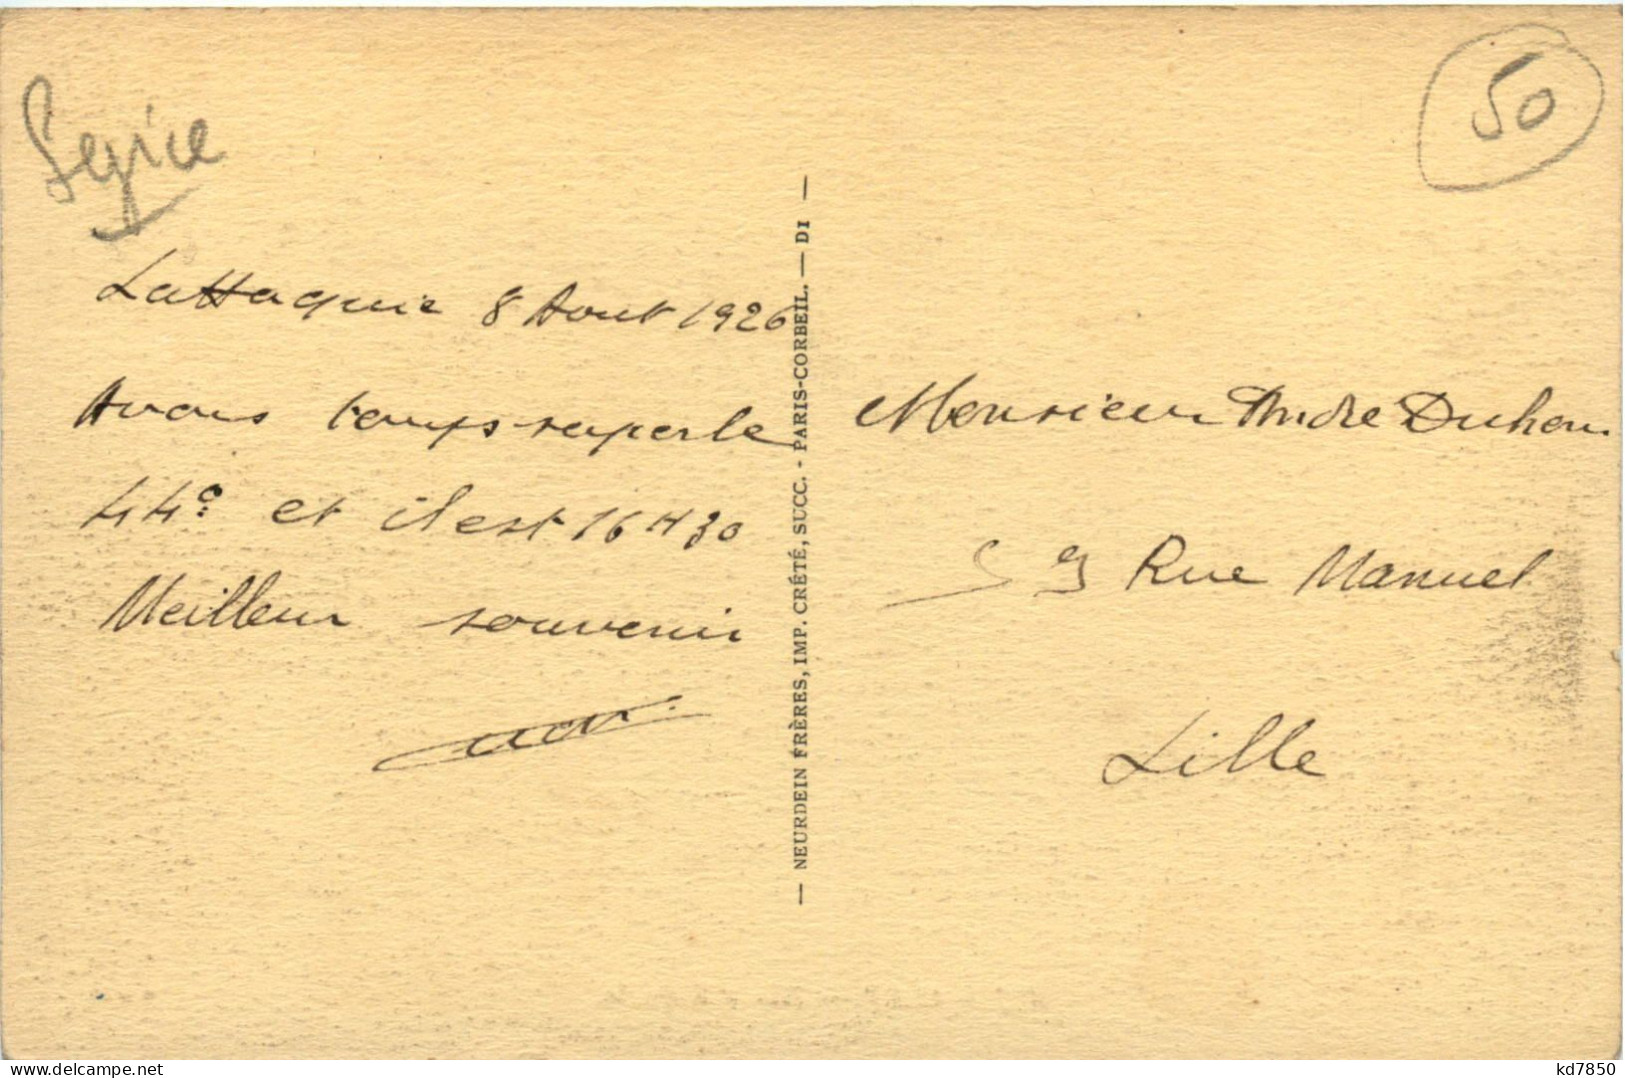 50
Lattaquie 8 Aout 1926
Avons temps superbe
44° et il est 16 H 30
Meilleur souvenir
— NEURDEIN FRÈRES, IMP. CRÉTÉ, SUCC. - PARIS-CORBEIL. — D1 —
Monsieur André
Rue Manuel
Lille
kd7850